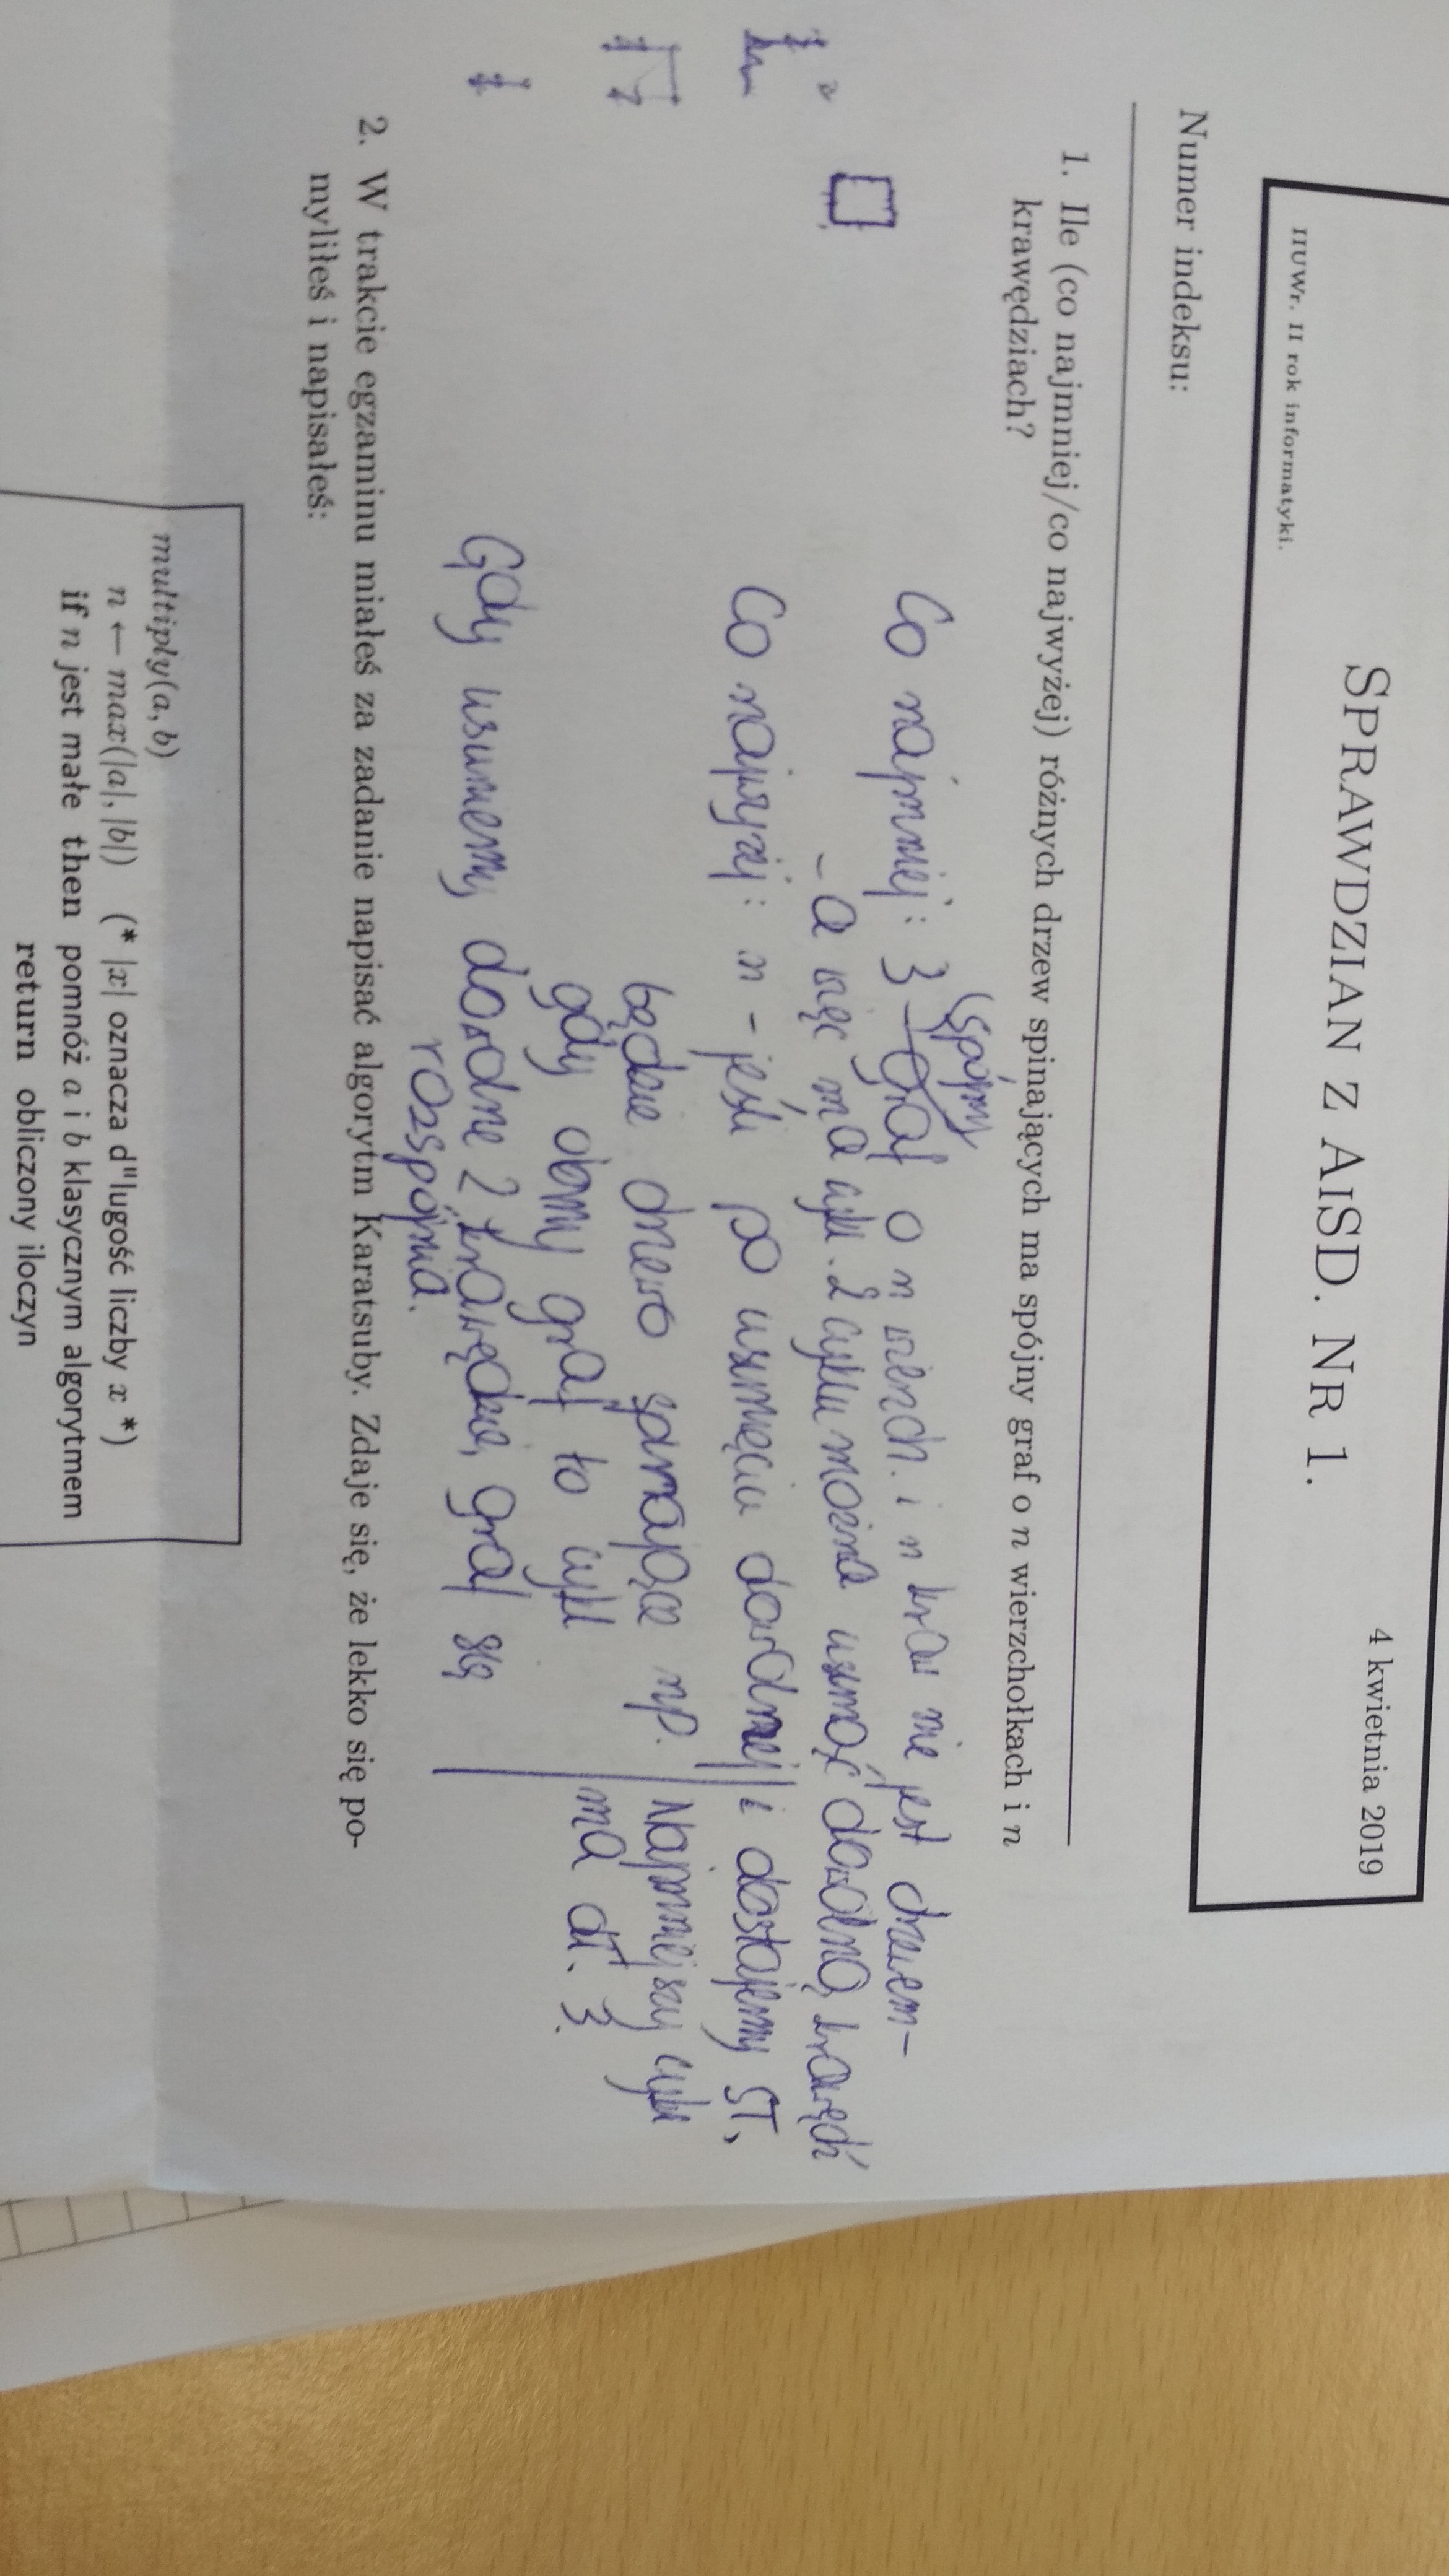 4 kwietnia 2019
SPRAWDZIAN Z AISD. NR 1.
IIUWr. II rok informatyki.
Numer indeksu:
1. Ile (co najmniej/co najwyżej) różnych drzew spinających ma spójny graf o n wierzchołkach i n
krawędziach?
(spójny)
Co najmniej: 3 - graf o n wierzch. i n kraw nie jest drzewem-
- a więc ma cykl. Z cyklu można usunąć dowolną krawędź
i dostajemy ST.
Najmniejszy cykl
ma dł. 3.
Co najwyżej: n - jeśli po usunięciu dowolnej
będzie drzewo spinające np.
gdy obmy graf to cykl
Gdy usuniemy dowolne 2 krawędzie, graf się
rozspójnia.
2. W trakcie egzaminu miałeś za zadanie napisać algorytm Karatsuby. Zdaje się, że lekko się po-
myliłeś i napisałeś:
multiply(a, b)
n ← max(|a|, |b|) (* |x| oznacza d"lugość liczby x *)
if n jest małe then pomnóż a i b klasycznym algorytmem
return obliczony iloczyn